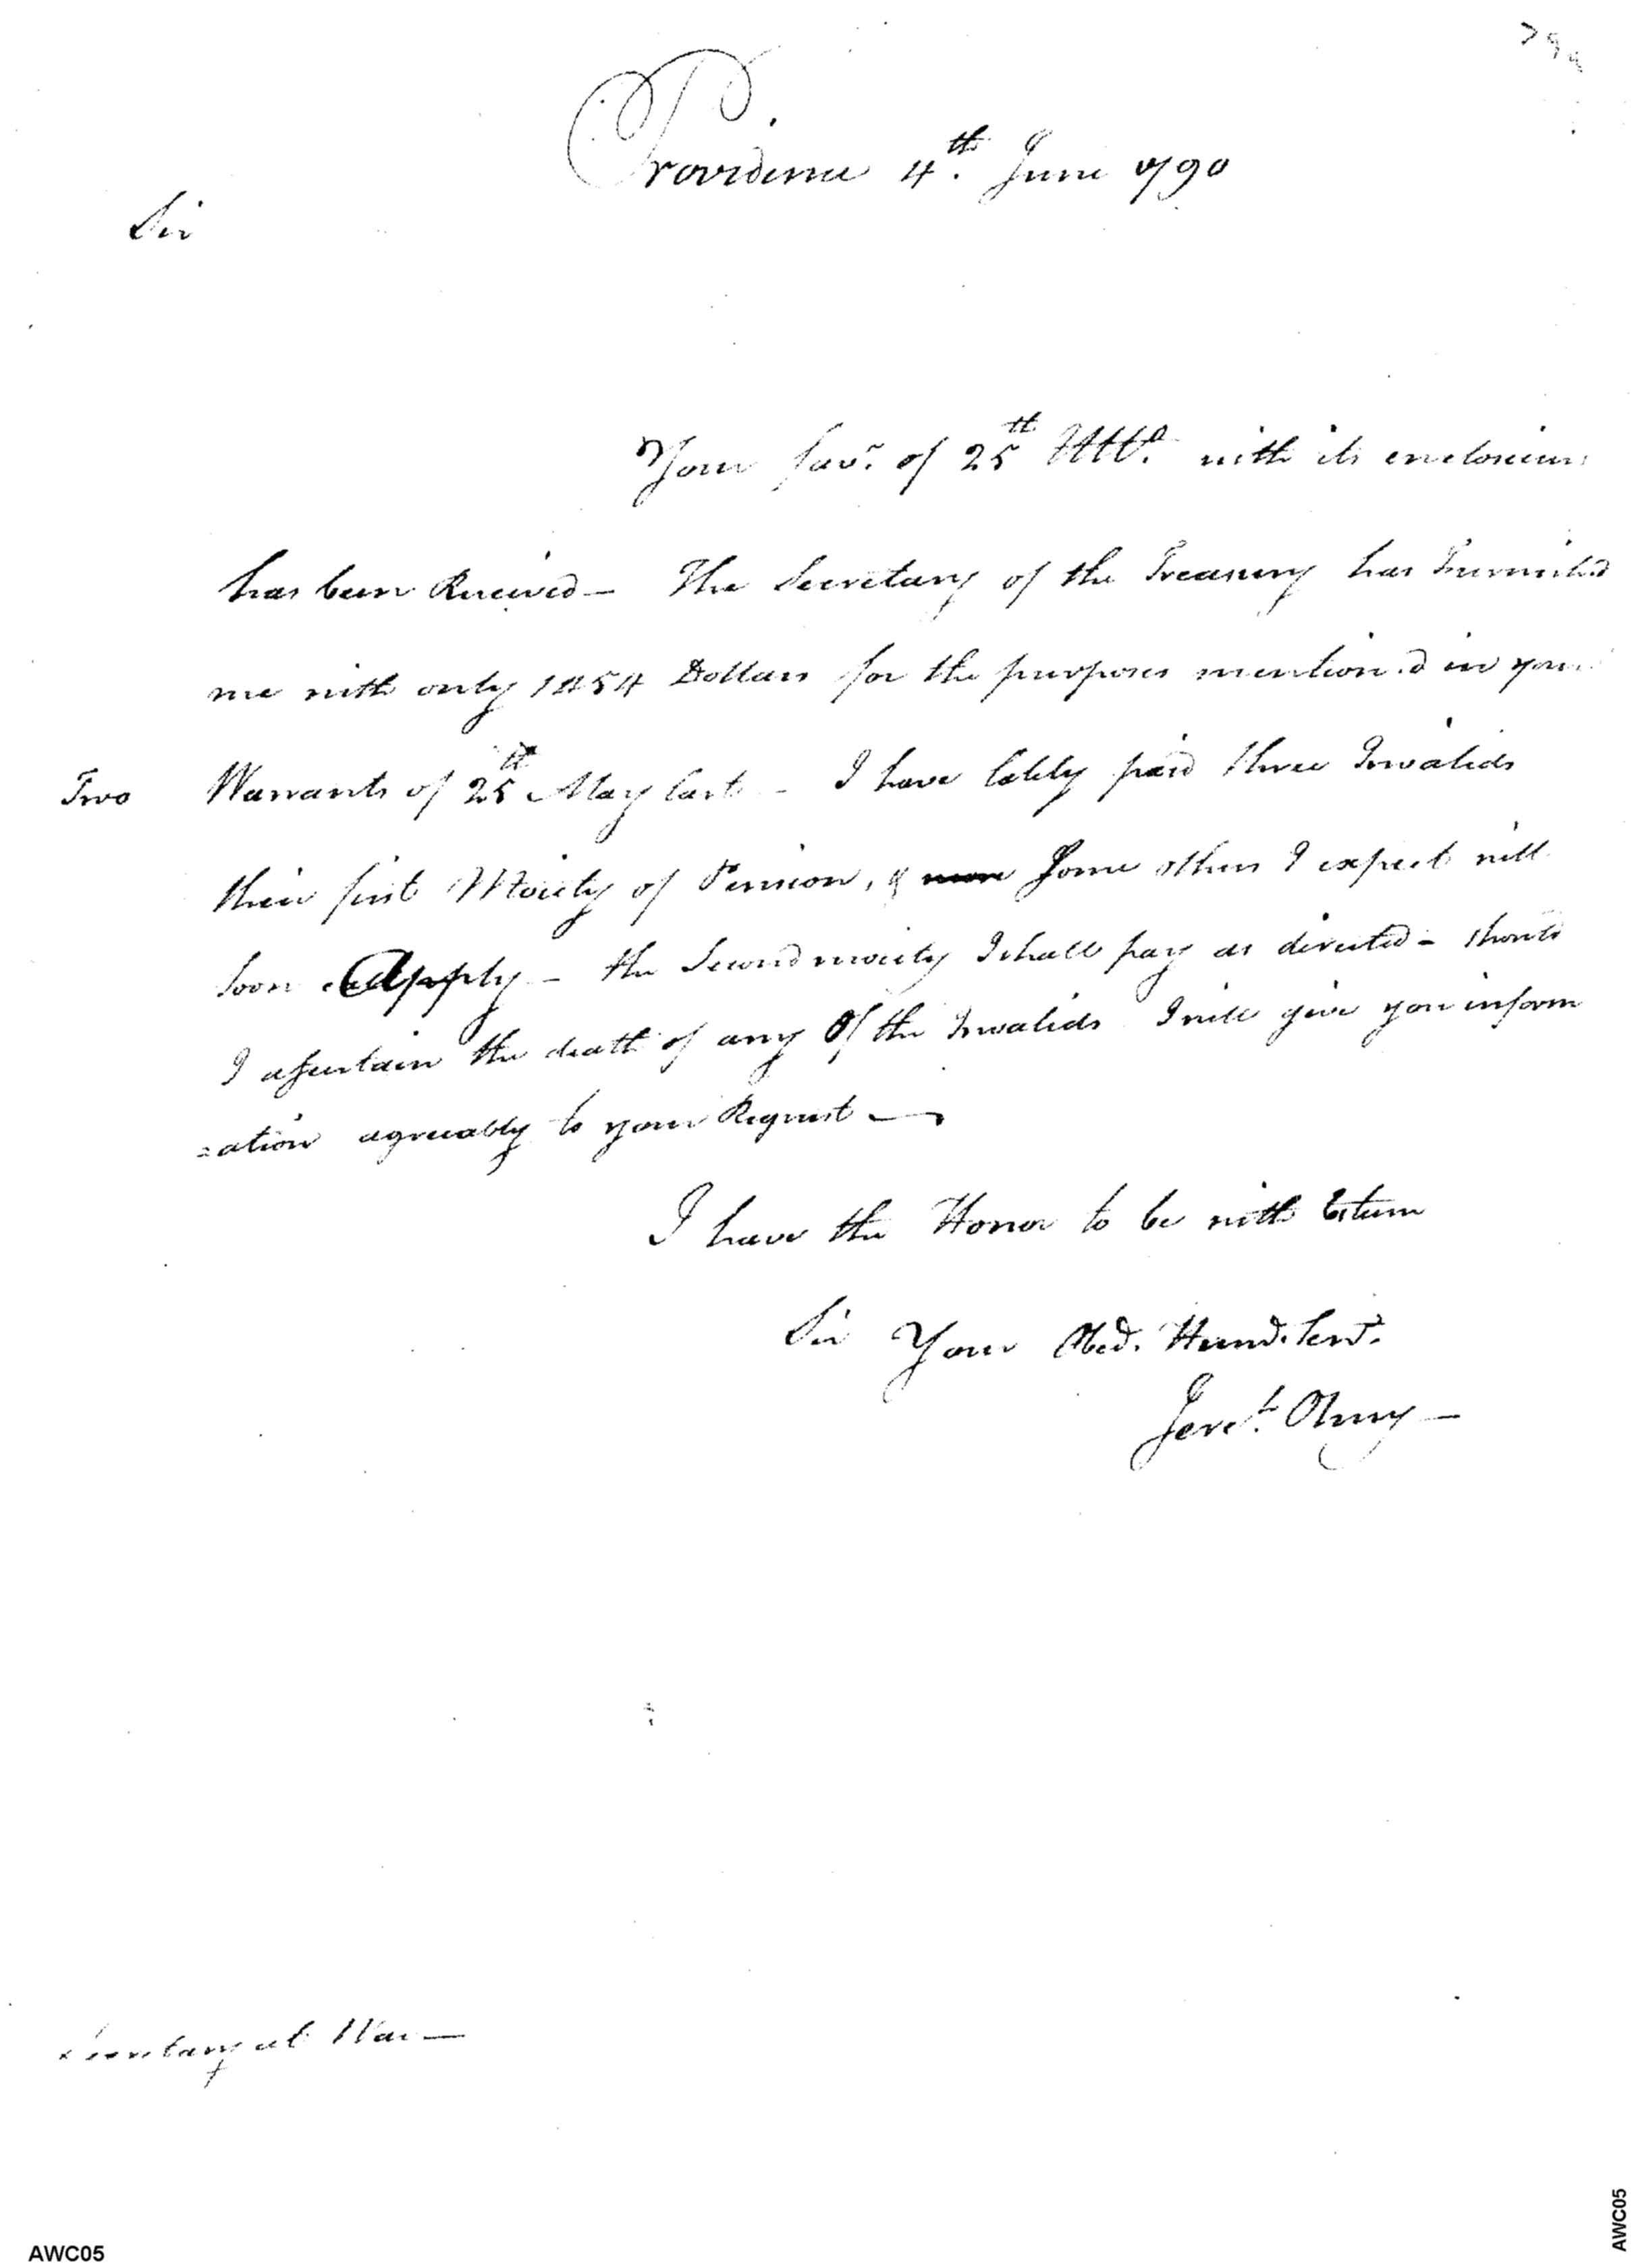 Providence 4th. June 1790
Sir
Your favr. of 25th Ulto. with its enclosures
has been Received – The Secretary of the Treasury has Furnished
me with only 1454 Dollars for the purposes mention.d in your
Two Warrants of 25th May last – I have lately paid three Invalids
their first Moiety of Pension, & Some others I expect will
soon Apply – the Second moiety I shall pay as directed – should
I assertain the death of any Of the Invalids I will give you inform
=ation agreeably to your Request —
I have the Honor to be with Esteem
Sir Your Obed. Humb. Servt.
Jereh. Olney –
Secretary at War —
AWC05
AWC05